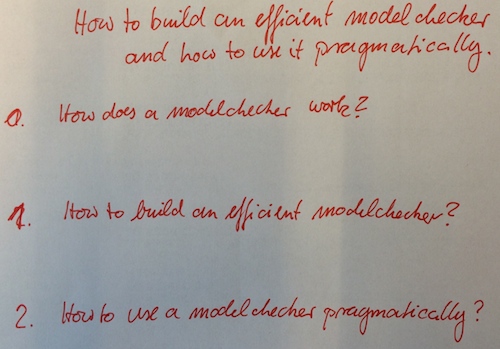 How to build an efficient model checker
and how to use it pragmatically.
0. How does a modelchecker work?
1. How to build an efficient modelchecker?
2. How to use a modelchecker pragmatically?